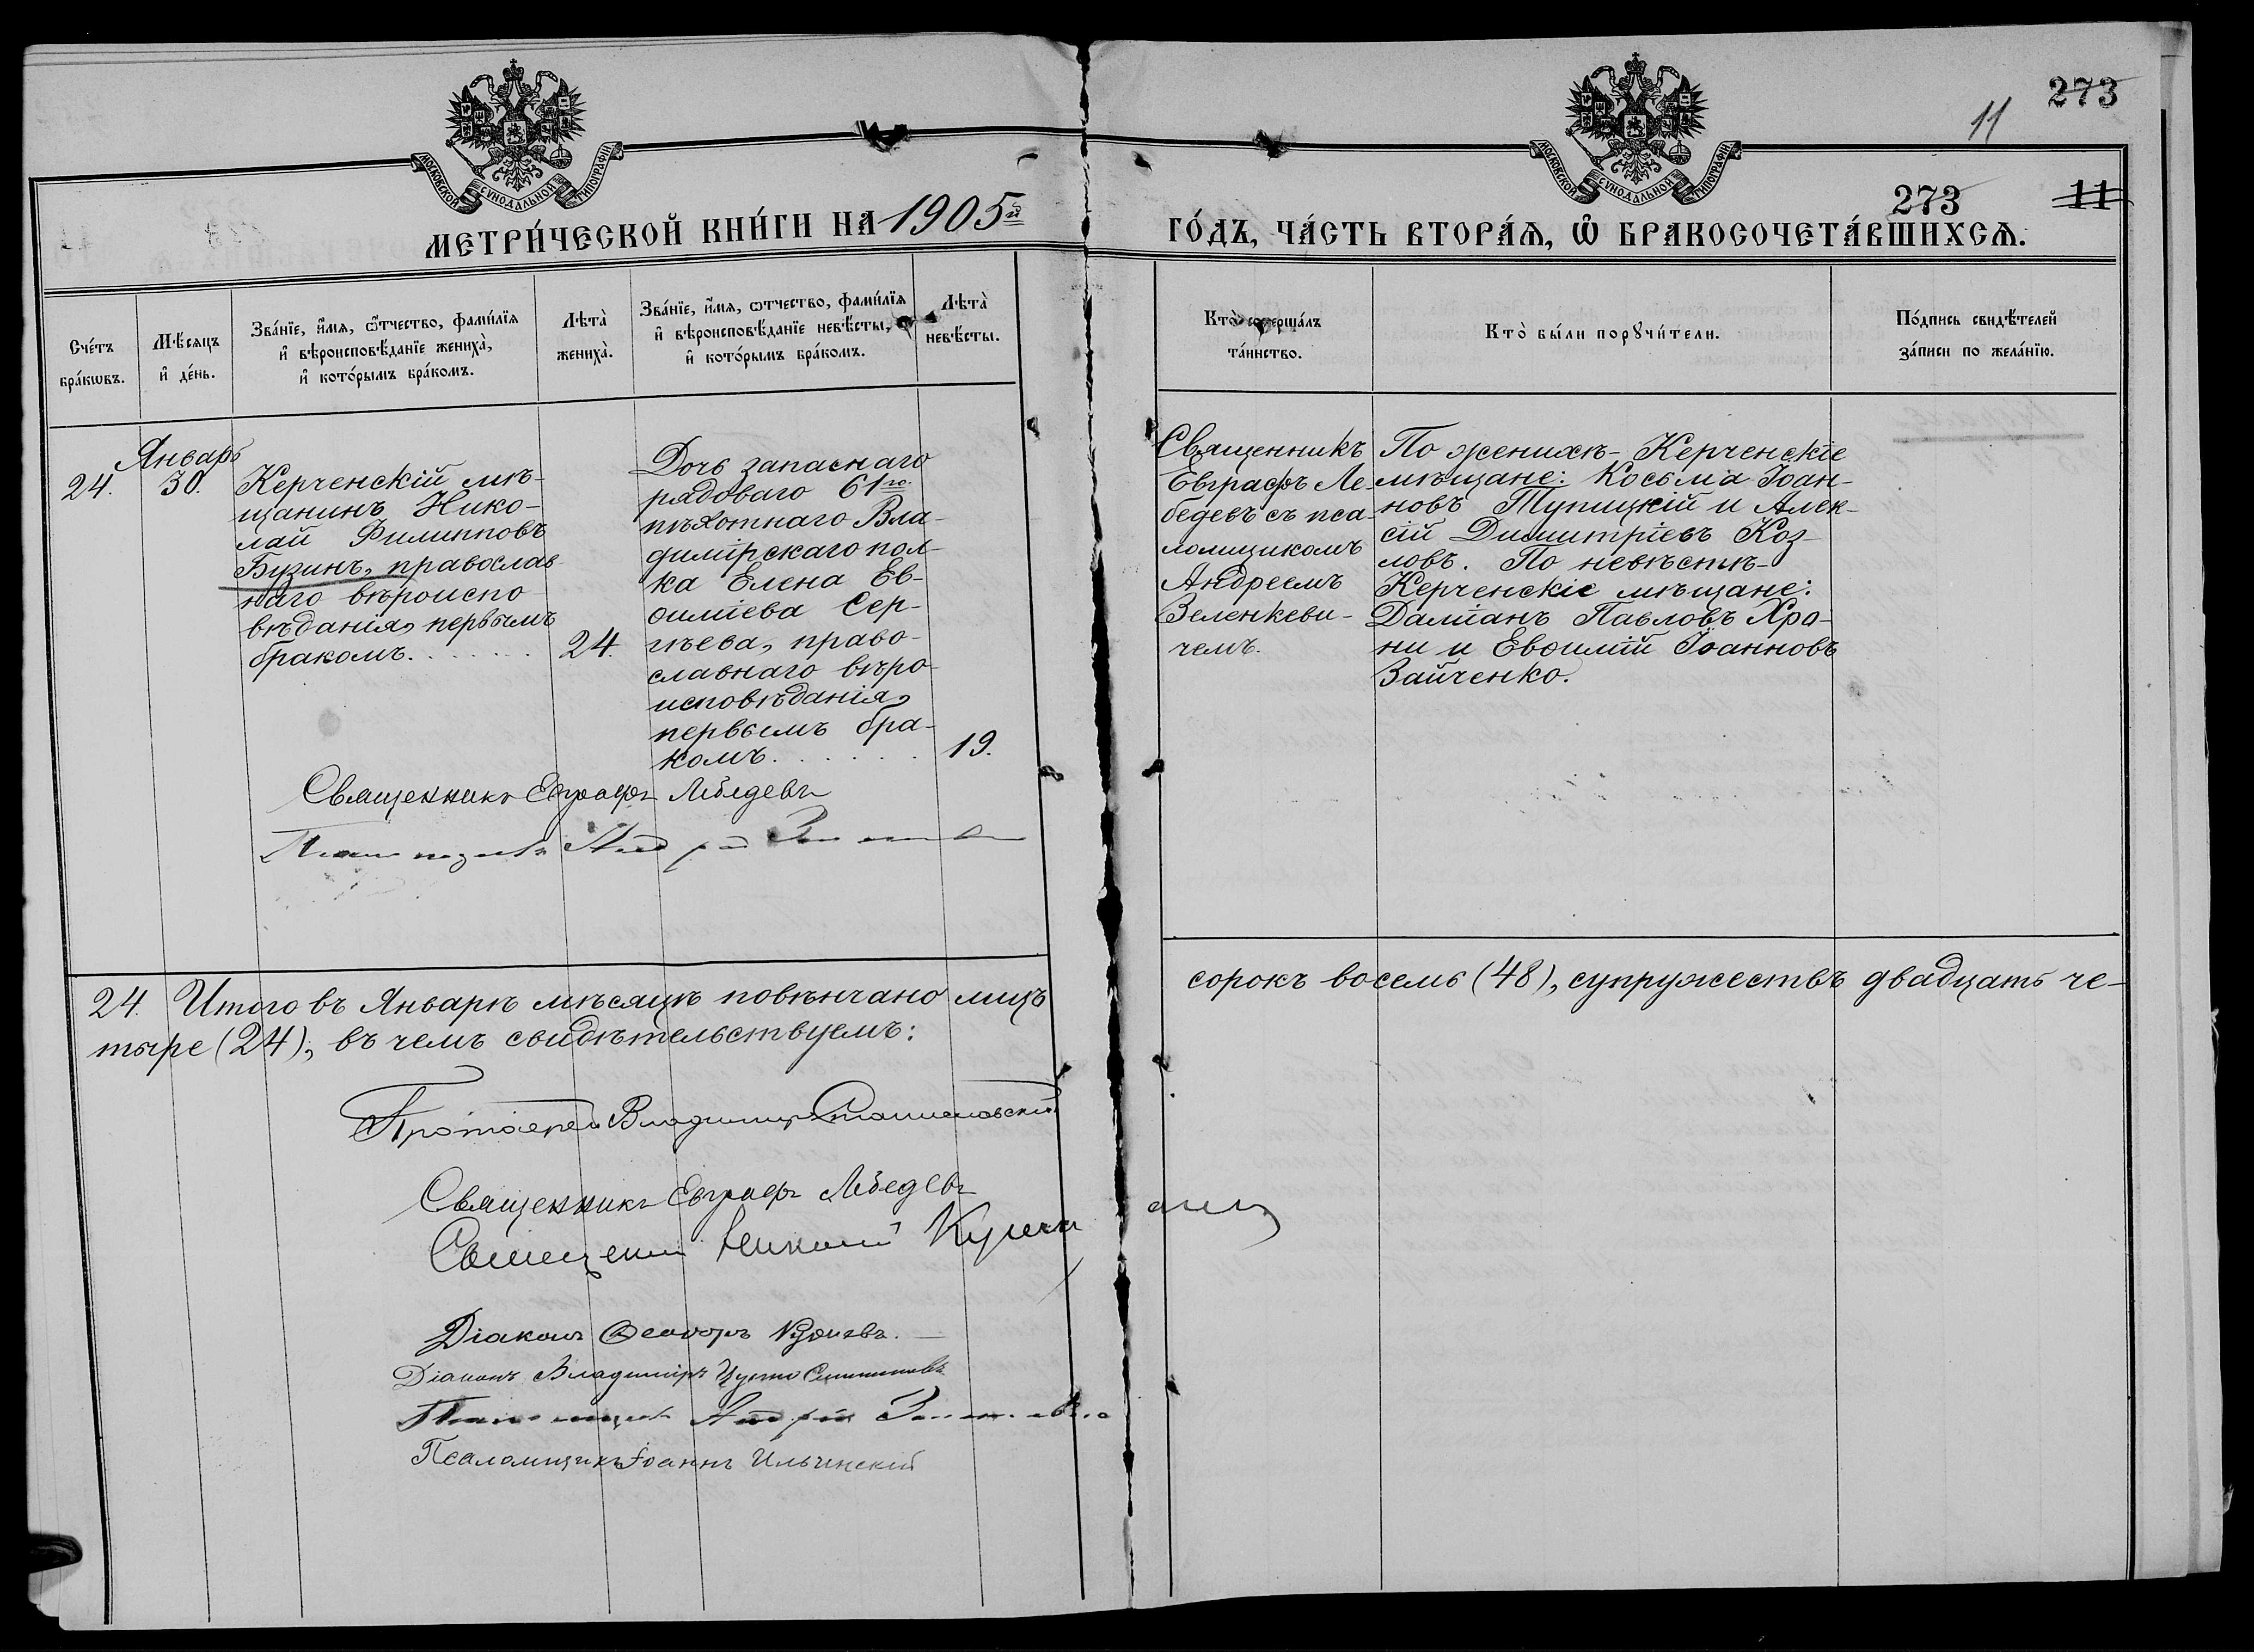 273
11
МОСКОВСКОЙ СѴНОДАЛЬНОЙ ТИПОГРАФІИ
МОСКОВСКОЙ СѴНОДАЛЬНОЙ ТИПОГРАФІИ
273 11
МЕТРИ́ЧЕСКОЙ КНИ́ГИ НА 1905й ГО́ДЪ, ЧА́СТЬ ВТОРА́Ѧ, Ѡ҆ БРАКОСОЧЕТА́ВШИХСѦ.
Сче́тъ
бра́кѡвъ.
Мѣ́сяцъ
и҆ де́нь.
Зва́нїе, и҆́мя, ѻ҆́тчество, фамі́лїя
и҆ вѣроисповѣ́данїе жениха̀,
и҆ кото́рымъ бра́комъ.
Лѣта̀
жениха̀.
Зва́нїе, и҆́мя, ѻтчество, фамі́лїя
и҆ вѣроисповѣ́данїе невѣ́сты,
и҆ кото́рымъ бра́комъ.
Лѣта̀
невѣ́сты.
Кто̀ соверша́лъ
та́инство.
Кто̀ бы́ли порꙋчи́тели.
По́дпись свидѣ́телей
за́писи по жела́нїю.
24.
Январь
30.
Керченскій мѣ-
щанинъ Нико-
лай Филипповъ
Бузинъ, православ-
наго вѣроиспо-
вѣданія, первымъ
бракомъ. . . . . . .
24.
Дочь запаснаго
рядоваго 61го
пѣхотнаго Вла-
димірскаго пол-
ка Елена Ев-
ѳиміева Сер-
гѣева, право-
славнаго вѣро-
исповѣданія,
первымъ бра-
комъ. . . . . . .
19.
Священникъ
Евграфъ Ле-
бедевъ съ пса-
ломщикомъ
Андреемъ
Зеленкеви-
чемъ.
По женихѣ- Керченскіе
мѣщане: Косьма Іоан-
новъ Тупицкій и Алек-
сій Димитріевъ Коз-
ловъ. По невѣстѣ-
Керченскіе мѣщане:
Даміанъ Павловъ Хро-
ни и Евѳимій Іоанновъ
Зайченко.
Священникъ Евграфъ Лебедевъ
Псаломщикъ Андрей
24. Итого въ Январѣ мѣсяцѣ повѣнчано лицъ сорокъ восемь (48), супружествъ двадцать че-
тыре (24), въ чемъ свидѣтельствуемъ:
Протоіерей Владимиръ Станиславскій
Священникъ Евграфъ Лебедевъ
Священникъ Николай
Діаконъ Ѳеодоръ
Діаконъ Владиміръ
Псаломщикъ Андрей
Псаломщикъ Іоаннъ Ильчинскій